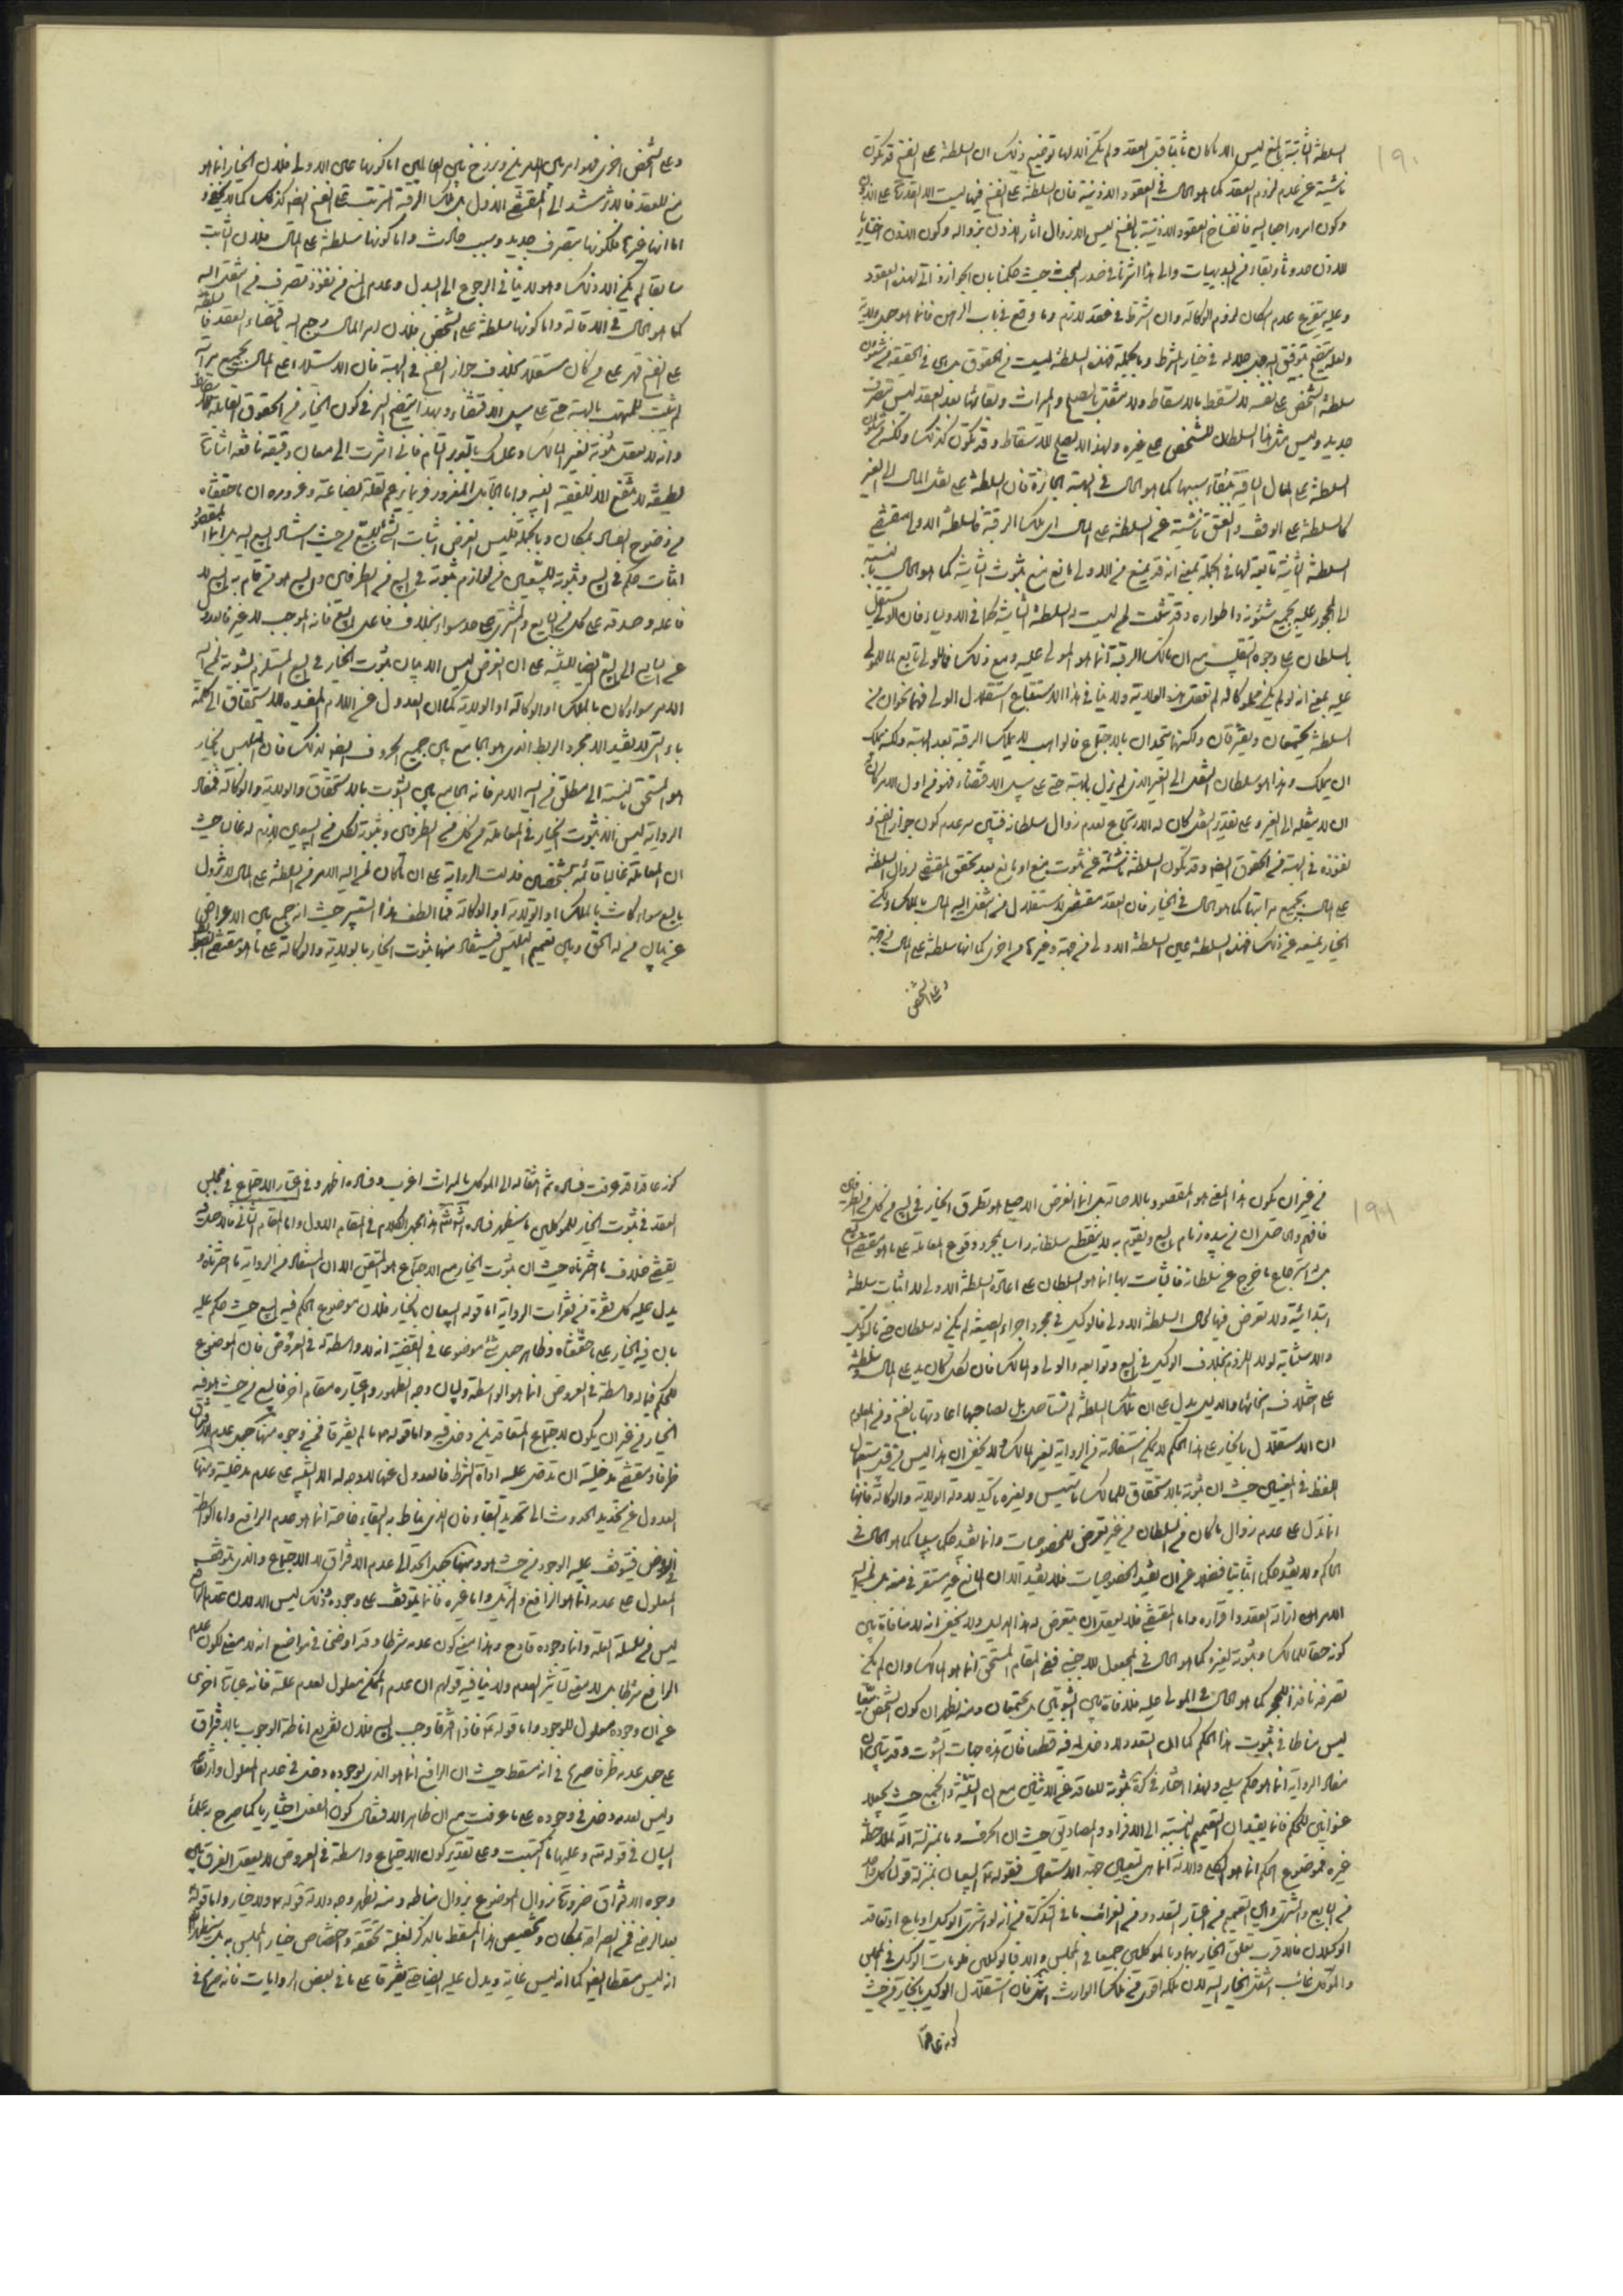 ١٩٠
السلطنة الثابتة بالفسخ ليس الا ما كان ثابتا قبل العقد ولم يكن الا لها توضيح ذلك ان السلطنة على الفسخ قد تكون
ناشئة عن عدم لزوم العقد كما هو الحال في العقود الاذنية فان السلطنة على الفسخ فيها ليست الا القدرة على الاذن
وكون امره راجعا اليه فانفساخ العقود الاذنية بالفسخ ليس الا زوال اثار الاذن بزواله وكون الاذن اختياريا
للاذن حدوثا وبقاء من البديهيات والى هذا اشرنا في صدر المبحث حيث حكمنا بان الجواز ذاتي لهذه العقود
وعليه يتفرع عدم امكان لزوم الوكالة وان اشترط في عقد لازم وما وقع في باب الرهن فانما هو
ولعله يتضح بتوفيق الله جل جلاله في خيار الشرط وبالجملة فهذه السلطنة ليست من الحقوق بل هي في الحقيقة من شئون
سلطنة الشخص على نفسه لا تسقط بالاسقاط ولا تنتقل بالصلح والميراث وبقائها بعد العقد ليس بتصرف
جديد وليس مثل هذا السلطان للشخص على غيره ولهذا لا يصلح للاسقاط وقد تكون كذلك ولكنه من شئون
السلطنة على المال الباقية ببقاء سببها كما هو الحال في الهبة الجائزة فان السلطنة على نقل المال الى الغير
كالسلطنة على الوقف والعتق ناشئة عن السلطنة على المال اي ملك الرقبة فالسلطنة الاولى مقتضى
السلطنة الثانية تابعة لها في الجملة بمعنى انه قد يمنع من الاولى مانع يمنع بثبوت الثانية كما هو الحال بالنسبة
الى المحجور عليه بجميع شئونه واطواره وقد تثبت لمن ليست له السلطنة الثانية كما في الاولياء فان الولي يستقل
بالسلطان على وجوه النقل مع ان مالك الرقبة انما هو المولى عليه ومع ذلك فالولي تابع لما للمولى
عليه بمعنى انه لو لم يكن مملوكا له لم تعقل هذه الولاية ولا ينافي هذا الاستتباع استقلال الولي فهما نحوان من
السلطنة يجتمعان ويفترقان ولكنهما يتحدان بالاجتماع فالواهب لا يملك الرقبة بعد الهبة ولكنه يملك
ان يملك وهذا هو سلطان النقل الى الغير الذي لم يزل بالهبة حتى على سبيل الاقتضاء فهو من اول الامر كان
ان لا ينقله الى الغير وعلى تقدير النقل كان له الاسترجاع لعدم زوال سلطانه فتبين سر عدم كون جواز الفسخ و
نفوذه في الهبة من الحقوق ايضا وقد تكون السلطنة ناشئة عن ثبوت منع او مانع بعد تحقق المقتضي لزوال السلطنة
على المال بجميع مراتبها كما هو الحال في الخيار فان العقد مقتض لاستقلال من انتقل اليه المال بالملك ولكن
الخيار يمنعه عن ذلك فهذه السلطنة عين السلطنة الاولى من جهة وغيرها من اخرى كما انها سلطنة على المال من جهة
وعلى الشخص
وعلى الشخص اخرى فهو امر بين الامرين وبرزخ بين العالمين اما كونها عين الاولى فلان الخيار انما هو
منع للعقد فالاثر يستند الى المقتضي الاول بل ملك الرقبة المترتبة على الفسخ ايضا كذلك كما لا يخفى و
اما انها غيرها فلكونها بتصرف جديد وسبب حادث واما كونها سلطنة على المال فلان الثابت
سابقا لم يكن الا ذلك وهو لا ينافي الرجوع الى البدل وعدم المنع من نفوذ تصرف من انتقل اليه
كما هو الحال في الاقالة واما كونها سلطنة على الشخص فلان امر المال رجع اليه باقتضاء العقد فالسلطنة
على الفسخ قهر على من كان مستقلا بخلاف جواز الفسخ في الهبة فان الاستيلاء على المال بجميع مراتبه
لم يثبت للمتهب بالهبة حتى على سبيل الاقتضاء وبهذا يتضح السر في كون الخيار من الحقوق القابلة للاسقاط
وانه لا يعقل ثبوته لغير المالك وعليك بالتدبر التام فاني اشرت الى معان دقيقة نافعة اشارات
لطيفة لا ينتفع الا للفقيه النبيه واما الجاهل المغرور فربما يزعم لقلة بضاعته وغروره ان ما حققناه
من وضوح الفساد بمكان وبالجملة فليس الغرض اثبات الشئ للبيع من حيث استناد البيع اليه بل انما المقصود
اثبات حكم في البيع وثبوته للبيعين من لوازم ثبوته في البيع من الطرفين والبيع هو من قام به البيع لا
فاعله وصدقه على كل من البايع والمشتري على حد سواء بخلاف فاعل البيع فانه الموجب لا غير فالعدول
عن البايع الى البيع ايضا للتنبيه على ان الغرض ليس الا بيان ثبوت الخيار في البيع المستلزم لثبوته لمن اليه
الامر سواء كان بالملك او الوكالة او الولاية كما ان العدول عن اللام المفيده للاستحقاق الى كلمة
باء التي لا تفيد الا مجرد الربط الذي هو الجامع بين جميع الحروف ايضا لذلك فان المتلبس بالخيار
هو المستحق بالنسبة الى مطلق من اليه الامر فانه الجامع بين الثبوت بالاستحقاق والولاية والوكالة فمفاد
الرواية ليس الا ثبوت الخيار في المعاملة من كل من الطرفين وثبوته لكل من البيعين لازم له غالبا حيث
ان المعاملة غالبا قائمة بشخصين فدلت الرواية على ان ما كان لمن اليه الامر من السلطنة على المال لا تزول
بالبيع سواء كانت بالملك او الولاية او الوكالة فما الطف هذا التعبير حيث انه جمع بين الاعراض
عن بيان من له الحق وبين تعميم المتلبس فيستفاد منها ثبوت الخيار بالولاية والوكالة على ما هو مقتضى القواعد
١٩١
من غير ان يكون هذا المعنى هو المقصود بالاصالة بل انما الغرض الاصلي هو تطرق الخيار في البيع من كل من الطرفين
فافهم والحاصل ان من بيده زمام البيع ويقوم به لا ينقطع سلطانه راسا بمجرد وقوع المعاملة على ما هو مقتضى البيع
بل له استرجاع ما خرج عن سلطانه فالثابت بها انما هو السلطان على اعادة السلطنة الاولى لا اثبات سلطنة
ابتدائية ولا تعرض فيها لحال السلطنة الاولى فالوكيل في مجرد اجراء الصيغة لم يكن له سلطان حتى بالتوكيل
والاستنابة لولا اللزوم بخلاف الوكيل في البيع وتوابعه والولي والمالك فان لكل كان يد على المال وسلطنة
على اختلاف انحائها والدليل يدل على ان تلك السلطنة لم تستاصل بل لصاحبها اعادتها بالفسخ ومن المعلوم
ان الاستقلال بالخيار على هذا الحكم لا يمكن استفادته من الرواية لغير المالك ولا يخفى ان هذا ليس من قبيل استعمال
اللفظ في المعنيين حيث ان ثبوته بالاستحقاق للمالك تاسيس ولغيره تاكيد لادلة الولاية والوكالة فانها
انما تدل على عدم زوال ما كان من السلطان من غير تعرض للخصوصيات وانما تفيد حكما سلبيا كما هو الحال في
الحاكم ولا تفيد حكما اثباتيا فضلا عن ان تفيد الخصوصيات فلا تفيد الا ان المانع غير مستقر في منعه بل لمن اليه
الامر ازالة العقد واقراره واما المقتضي فلا يعقل ان يتعرض له هذا الدليل ولا يخفى انه لا منافاة بين
كونه حقا للمالك وثبوته لغيره كما هو الحال في المجعول للاجنبي ففي المقام المستحق انما هو المالك وان لم يكن
تصرفه نافذا للحجر كما هو الحال في المولى عليه فلا منافاة بين الثبوتين بل يجتمعان ومنه يظهر ان كون الشخص بيعا
ليس مناطا في ثبوت هذا الحكم كما ان التعدد لا دخل له فيه قطعا فان هذه جهات الثبوت وقد تبين ان
مفاد الرواية انما هو حكم سلبي ولهذا اختار في التذكرة ثبوته للعاقد عن الاثنين مع ان التثنية والجمع حيث يجعلا
عنوانين للحكم فانما يفيدان التعميم بالنسبة الى الافراد والمصاديق حيث ان الحرف وما بمنزلته آلة لملاحظة
غيره فموضوع الحكم انما هو الكلي والآلة انما هي لتعيين جهة الاستعمال فقوله ع البيعان بمنزلة قولنا كل واحد
من البايع والمشتري واين التعميم من اعتبار التعدد ومن الغرائب ما في التذكرة من انه لو اشترى الوكيل او باع او تعاقد
الوكيلان فالاقرب تعلق الخيار بهما وبالموكلين جميعا في المجلس والا فبالوكيلين فلو مات الوكيل في المجلس
والموكل غائب انتقل الخيار اليه لان ملكه اقوى من ملك الوارث انتهى فان استقلال الوكيل بالخيار من حيث
كونه عاقدا
كونه عاقدا قد عرفت فساده ثم انتقاله الى الموكل بالميراث اغرب وفساده اظهر وفي اعتبار الاجتماع في مجلس
العقد في ثبوت الخيار للموكلين ما سيظهر فساده انشاء الله هذا مجمل الكلام في المقام الاول واما المقام الثاني فالاصل فيه
يقتضي خلاف ما اخترناه حيث ان ثبوت الخيار مع الاجتماع هو المتيقن الا ان المستفاد من الرواية ما اخترناه و
يدل عليه كل فقرة من فقرات الرواية اما قوله البيعان بالخيار فلان موضوع الحكم فيه البيع حيث حكم عليه
بان فيه الخيار على ما حققناه وظاهر جعل شئ موضوعا في القضية انه لا واسطة له في العروض فان الموضوع
للحكم فيما له واسطة في العروض انما هو الواسطة ولبيان وجه الظهور واعتباره مقام اخر فالبيع من حيث هو فيه
الخيار من غير ان يكون لاجتماع المتعاقدين دخل فيه واما قوله ع ما لم يفترقا فمن وجوه منها جعل عدم الافتراق
ظرفا ومقتضى مدخليته ان تدخل عليه اداة الشرط فالعدول عنها لا وجه له الا التنبيه على عدم مدخليته ومنها
العدول عن تحديد الحدوث الى تحديد البقاء فان الذي يناط به البقاء خاصة انما هو عدم الرافع واما الواسطة
في العروض فيتوقف عليه الوجود من حيث هو ومنها جعل الحد الى عدم الافتراق لا الاجتماع والذي يتوقف
المعلول على عدمه انما هو الرافع والمزيل واما غيره فانما يتوقف على وجوده وذلك ليس الا لان عدم المانع
ليس من سلسلة العلة وانما وجوده قادح وهذا معنى كون عدمه شرطا وقد اوضحنا في مواضع انه لا معنى لكون عدم
الرافع شرطا بل لا معنى لتاثير العدم ولا ينافيه قولهم ان عدم الممكن معلول لعدم علته فانه عبارة اخرى
عن ان وجوده معلول للوجود واما قوله ع فاذا افترقا وجب البيع فلان تفريع اناطة الوجوب بالافتراق
على جعل عدمه ظرفا صريح في انه مسقط حيث ان الرافع انما هو الذي لوجوده دخل في عدم المعلول وارتفاعه
وليس لعدمه دخل في وجوده على ما عرفت مع ان ظاهر الافتعال كون الفعل اختياريا كما صرح به علماء
البيان في قوله تعالى وعليها ما اكتسبت وعلى تقدير كون الاجتماع واسطة في العروض لا يعقل الفرق بين
وجوه الافتراق ضرورة زوال الموضوع بزوال مناطه ومنه يظهر وجه دلالة قوله ع ولا خيار واما قوله
بعد الرضى فمن الصراحة بمكان وتخصيص هذا المسقط بالذكر لغلبة تحققه واختصاص خيار المجلس به بل سيظهر
انه ليس مسقطا ايضا كما انه ليس غاية ويدل عليه ايضا حتى يفترقا على ما في بعض الروايات فانه صريح في